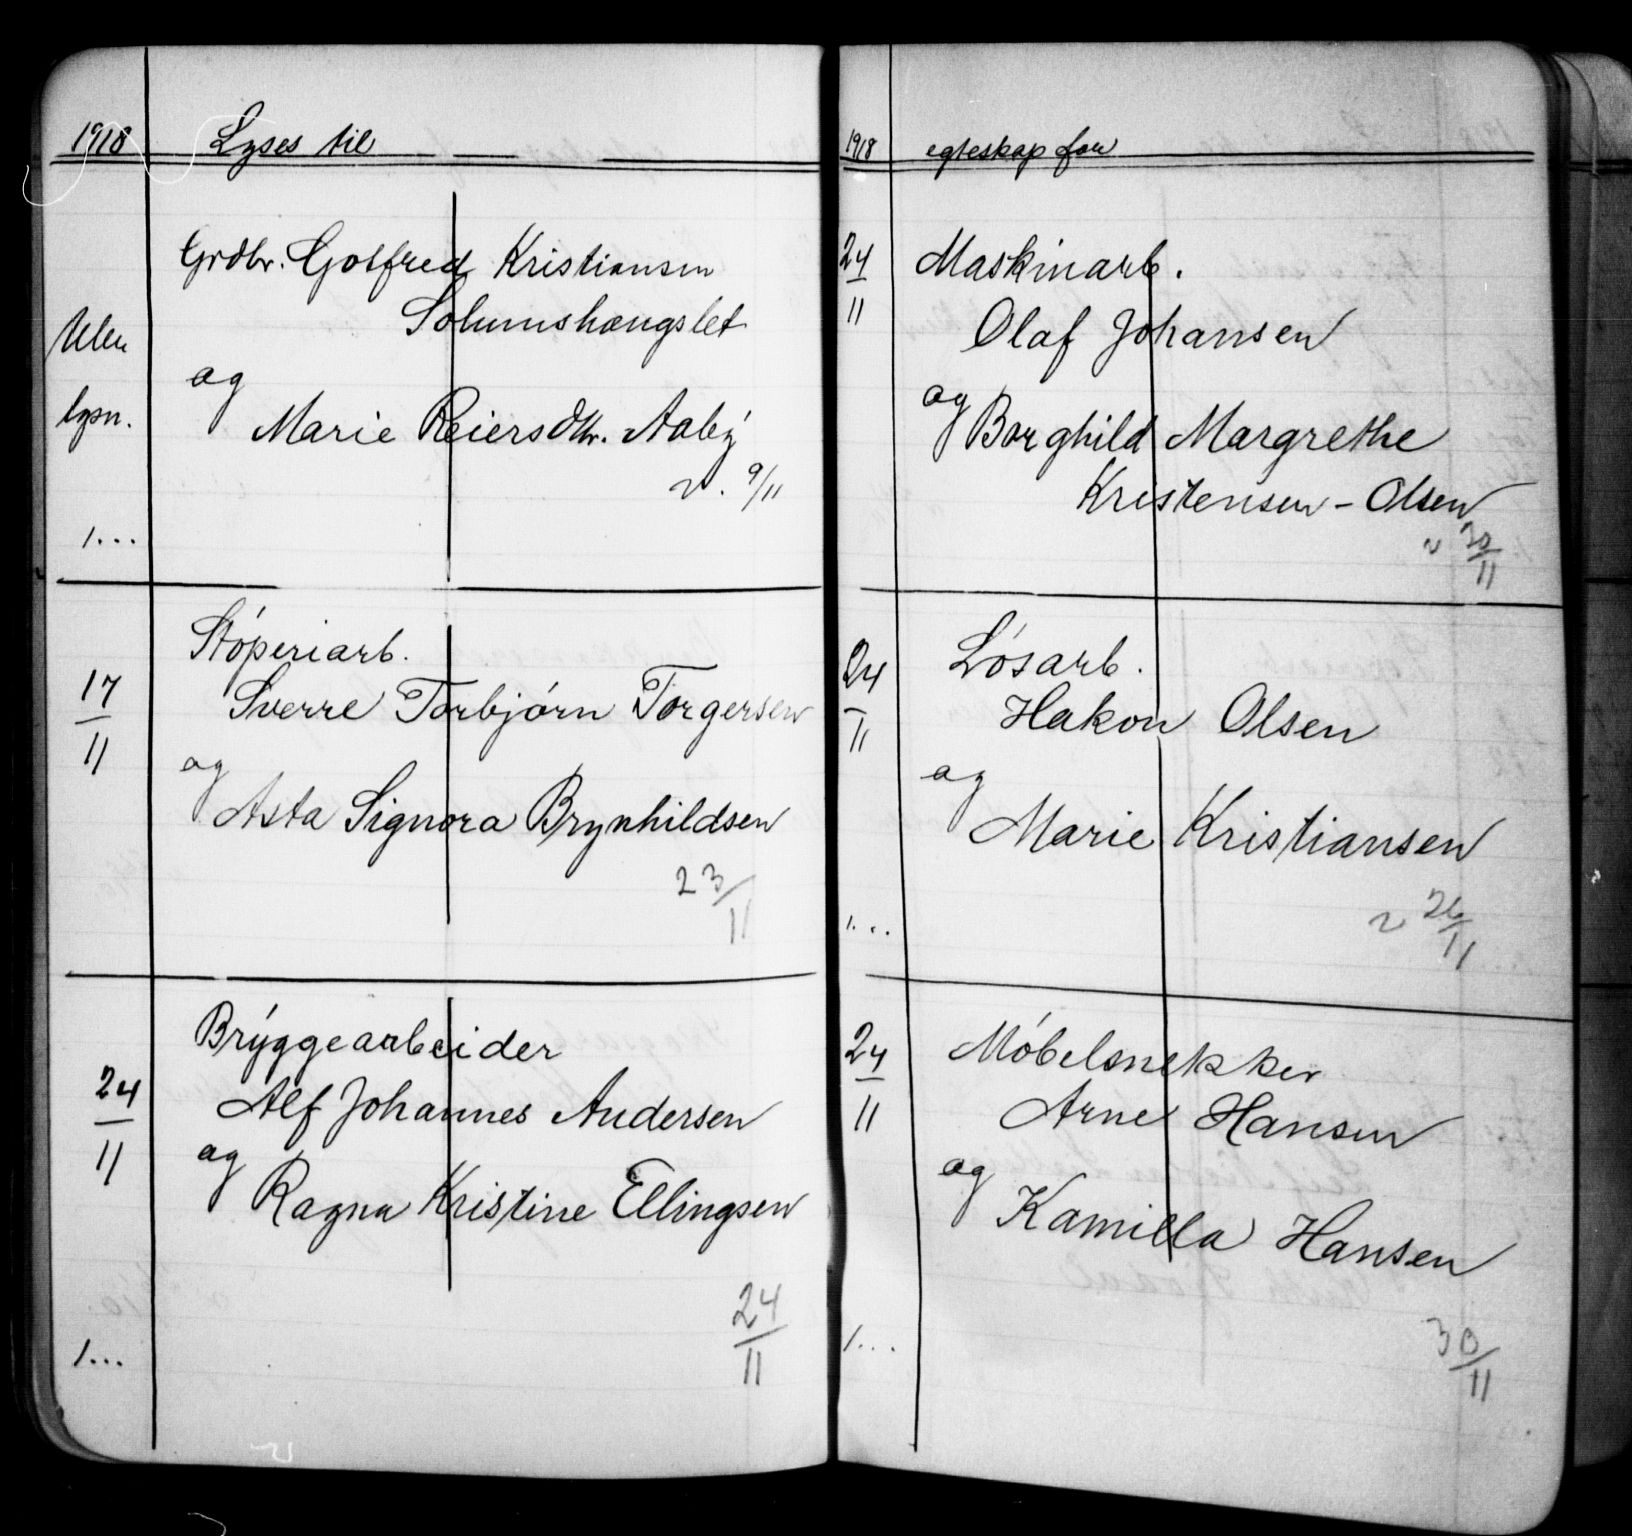 1918 Lyses til
Grdbr. Gotfred Kristiansen
Solumshaugslet
Uten
lysn.
og
Marie Reiersdtr. Aaby
v. 9/11
1...
Støperiarb.
17/11
Sverre Torbjørn Torgersen
og
Asta Signora Brynhildsen
23/11
Bryggearbeider
24/11
Alf Johannes Andersen
og
Ragna Kristine Ellingsen
24/11
1...
1918 egteskap for
24/11 Maskinarb.
Olaf Johansen
og
Borghild Margrethe
Kristensen - Olsen
v 30/11
24/11 Løsarb.
Hakon Olsen
og
Marie Kristiansen
v 26/11
1...
24/11 Møbelsnekker
Arne Hansen
og
Kamilla Hansen
30/11
1...